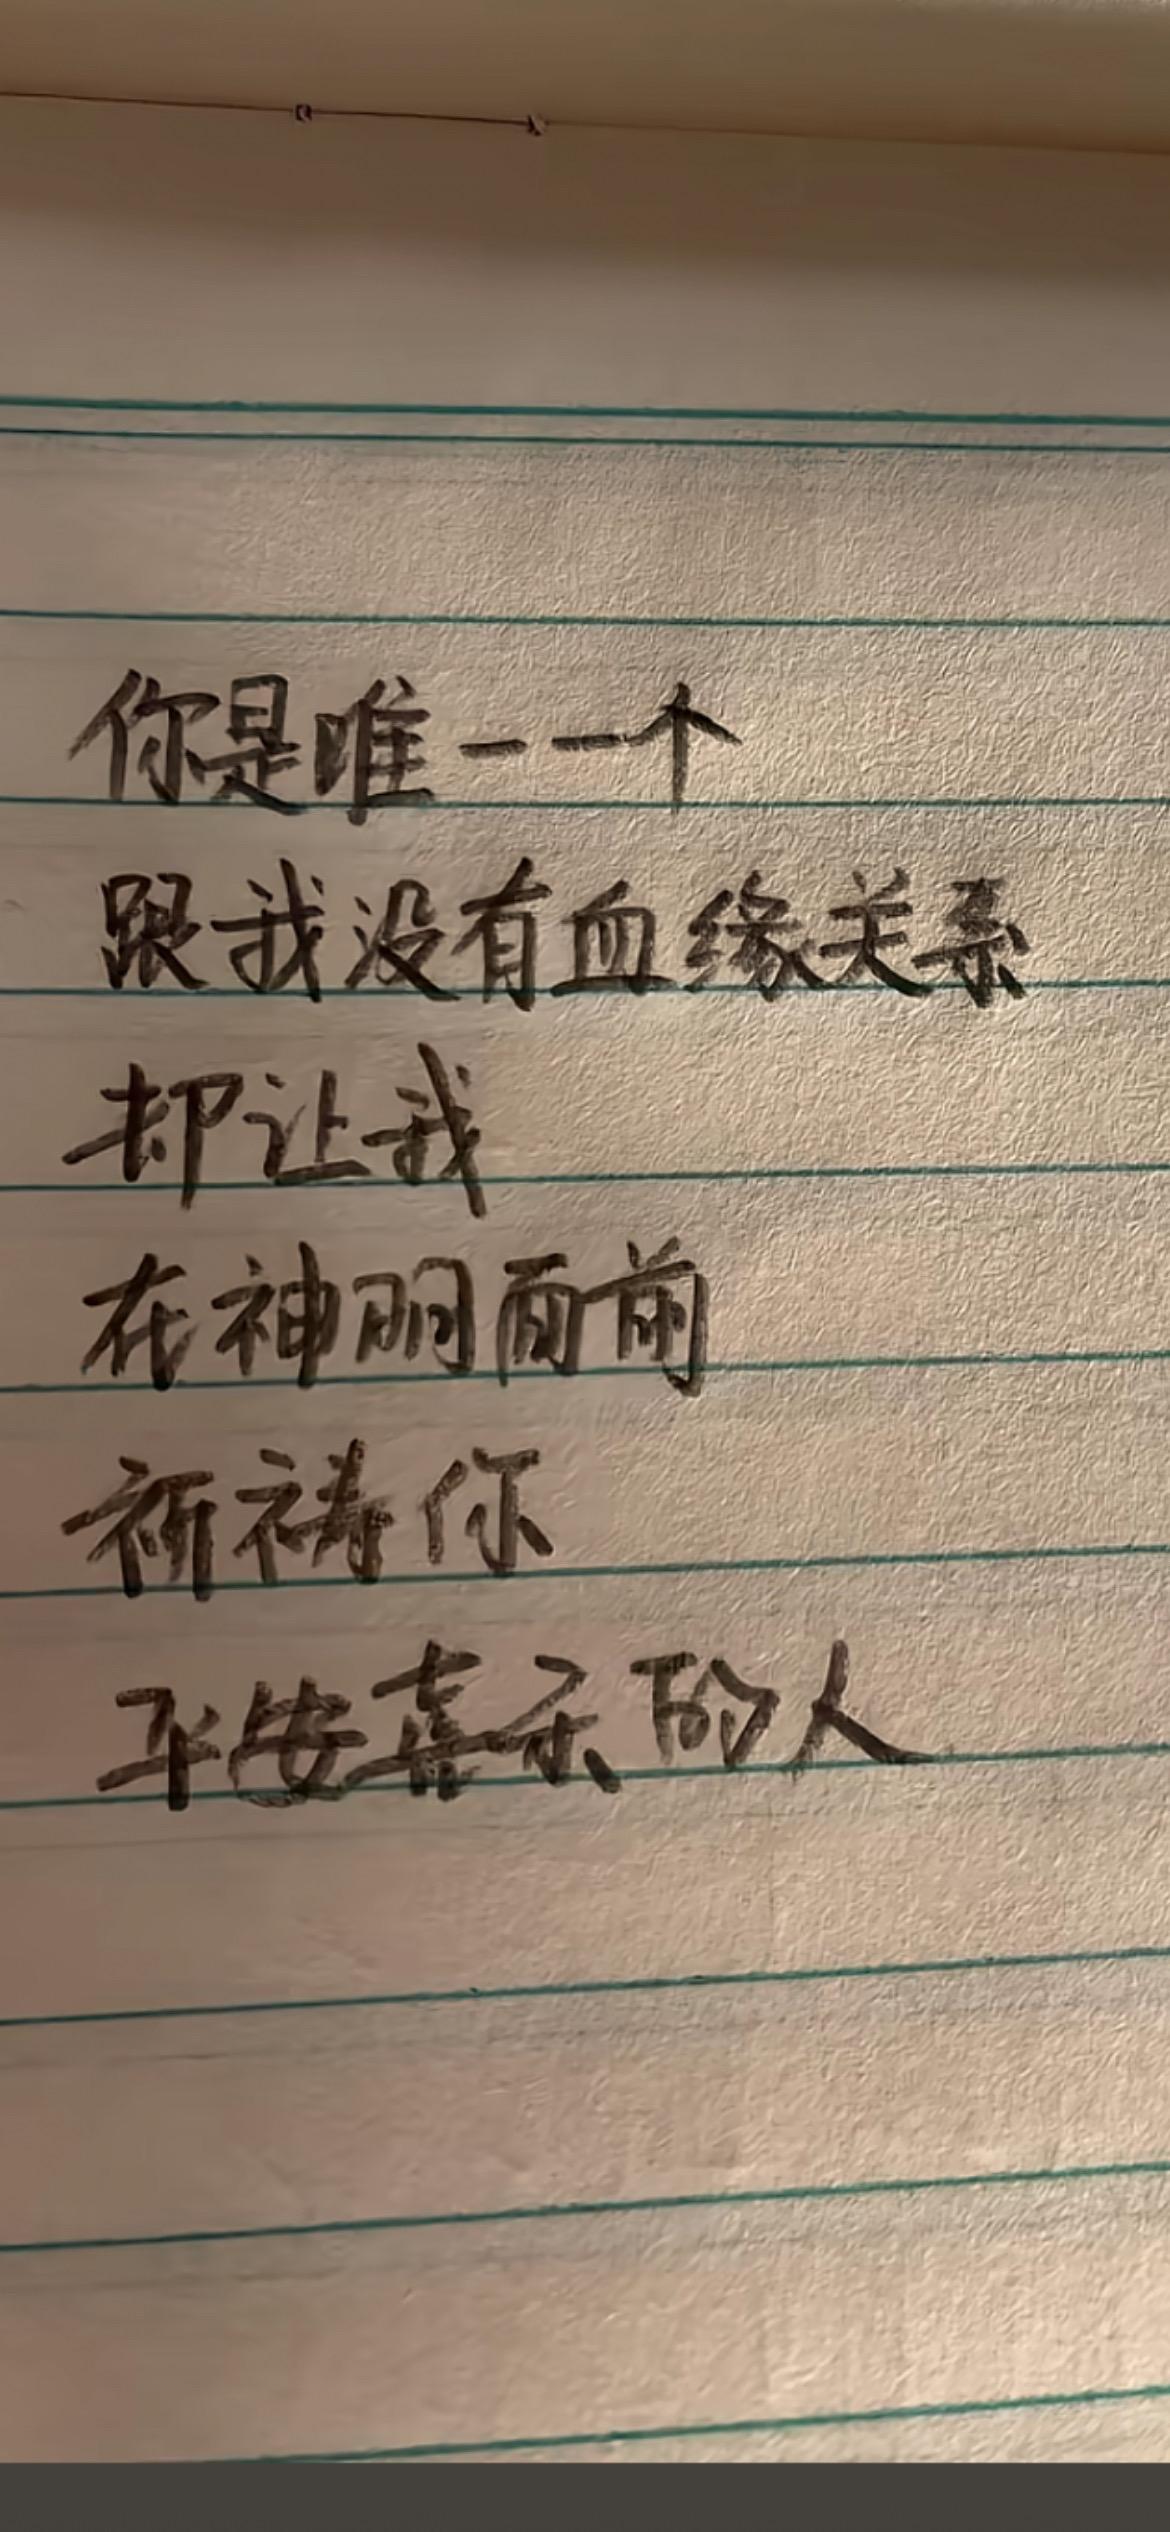 你是唯一一个
跟我没有血缘关系
却让我
在神明面前
祈祷你
平安喜乐的人